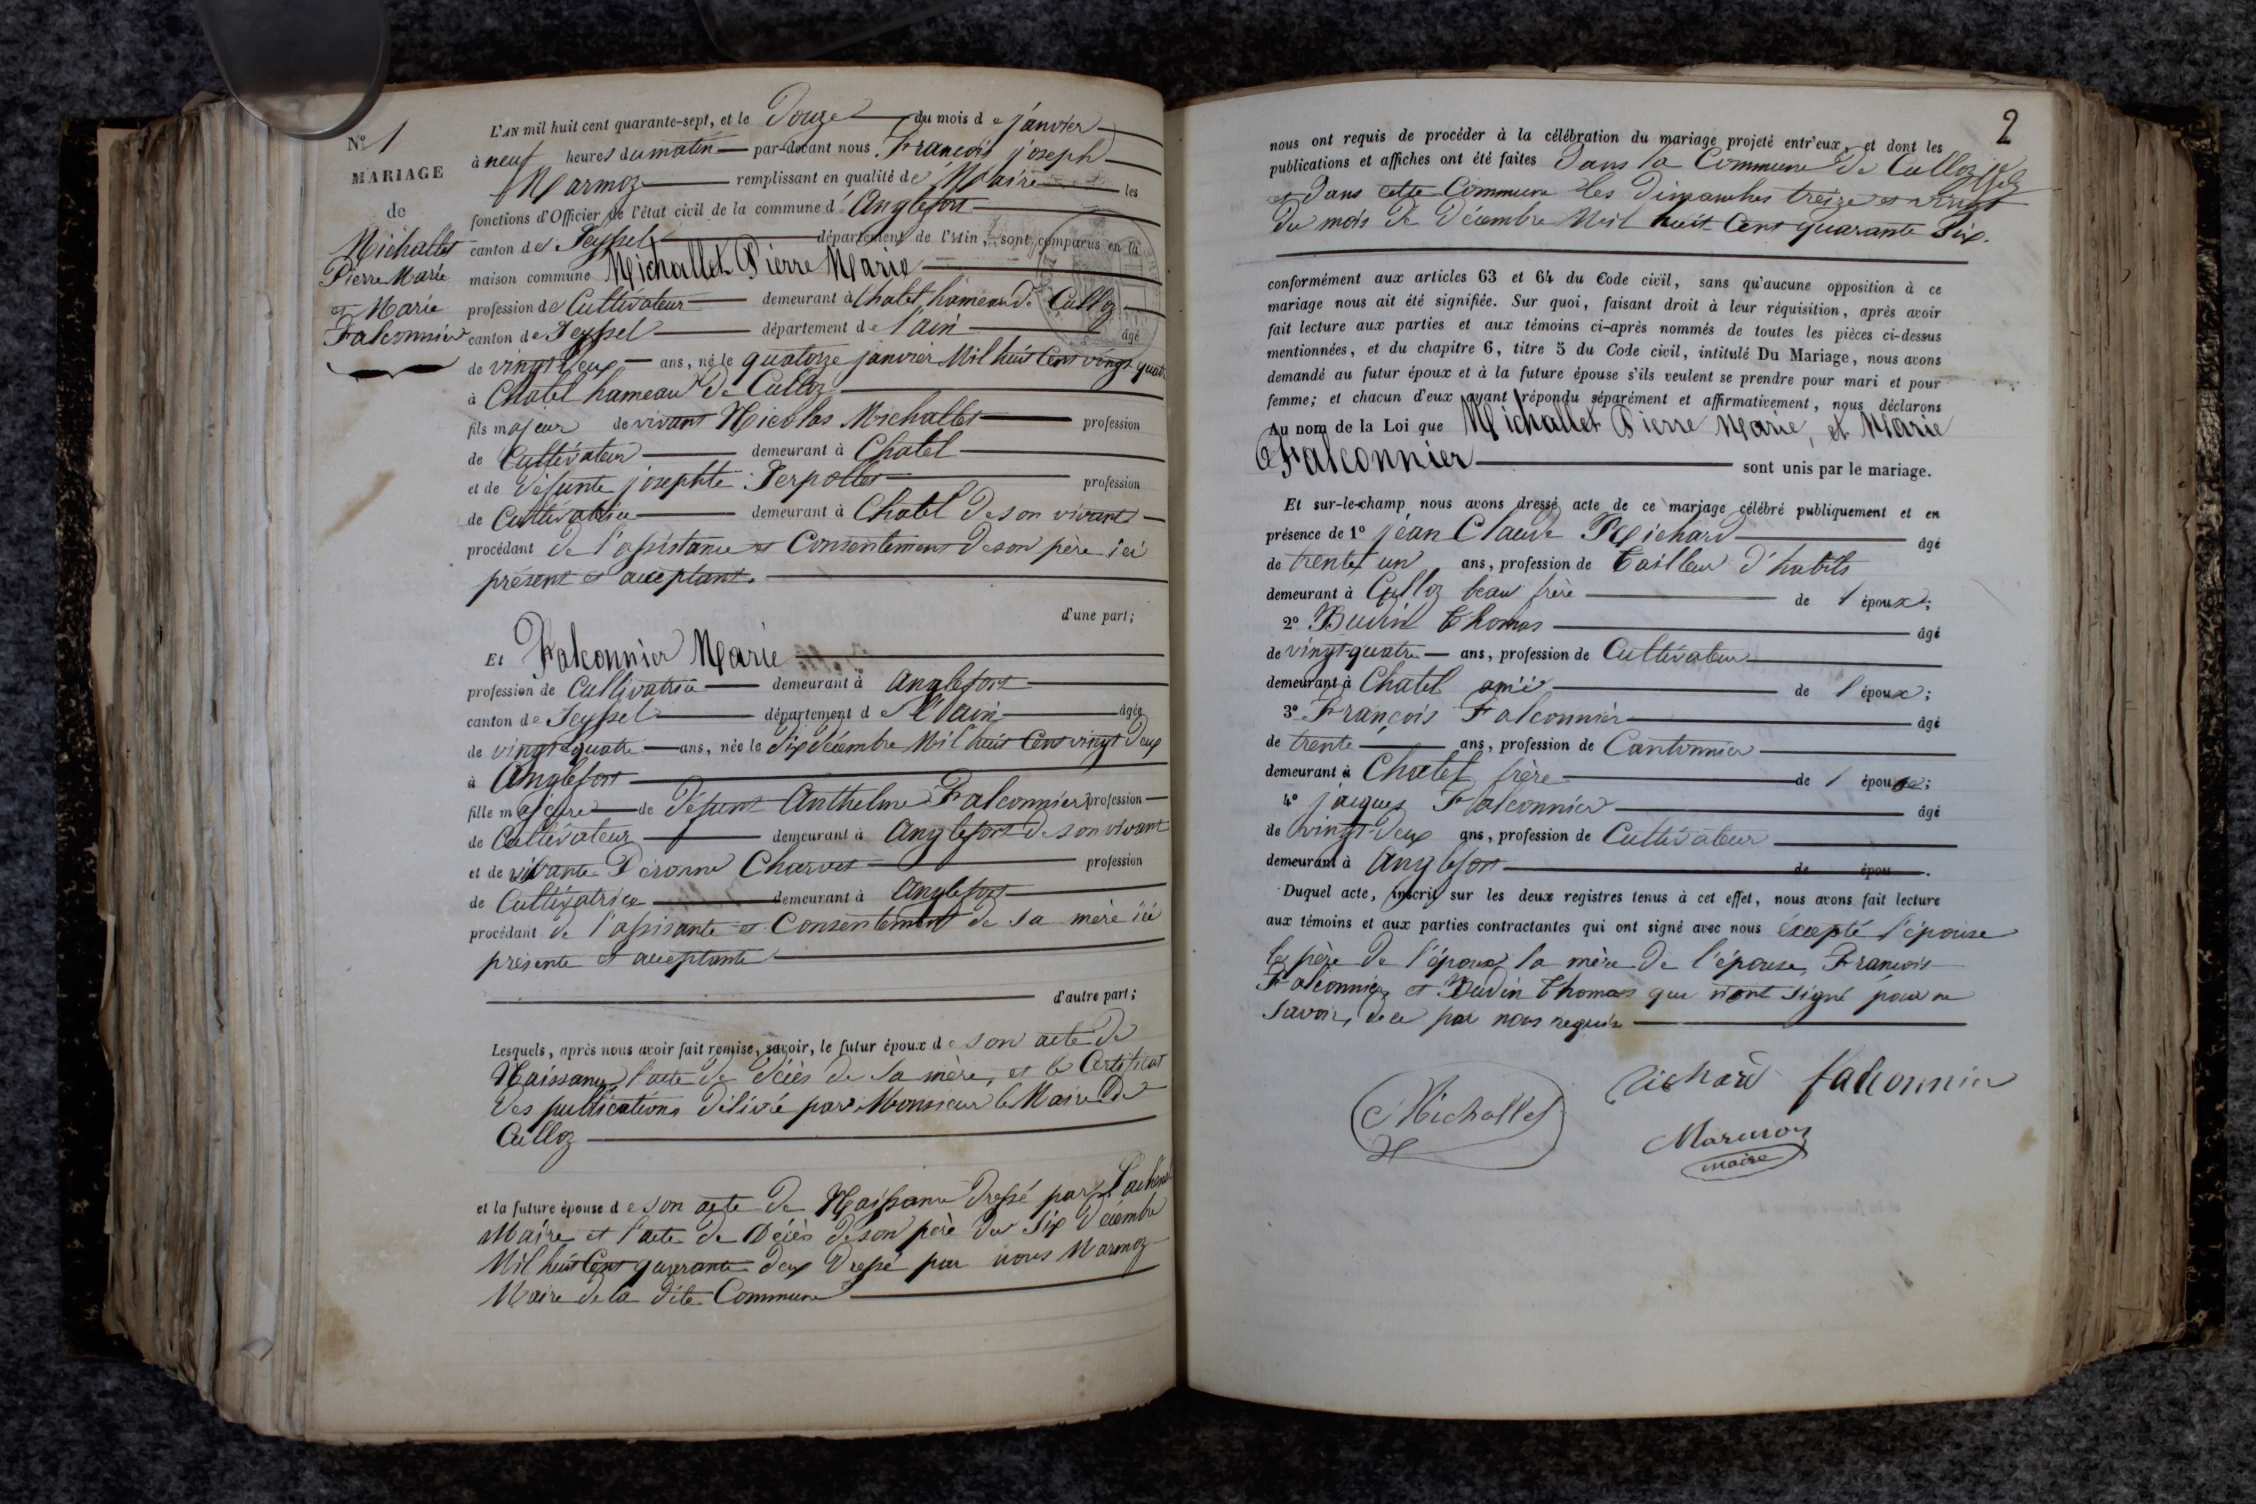 N° 1
MARIAGE
de
Michallet
Pierre Marie
et Marie
Falconnier
L'AN mil huit cent quarante-sept, et le Douze du mois de janvier
à neuf heures du matin par-devant nous François joseph
Marmoz remplissant en qualité de Maire les
fonctions d'Officier de l'état civil de la commune d'Anglefort
canton de Seyssel département de l'Ain, sont comparus en la
maison commune Michallet Pierre Marie
profession de Cultivateur demeurant à Chatel hameau de Culloz
canton de Seyssel département de l'ain âgé
de vingt deux ans, né le quatorze janvier Mil huit Cent vingt quatre
à Chatel hameau de Culloz
fils majeur de vivant Nicolas Michallet profession
de Cultivateur demeurant à Chatel
et de défunte josephte Serpollet profession
de Cultivatrice demeurant à Chatel de son vivant
procédant de l'assistance et Consentement de son père ici
présent et acceptant.
d'une part;
Et Falconnier Marie
profession de Cultivatrice demeurant à Anglefort
canton de Seyssel département de l'ain âgée
de vingt quatre ans, née le Six décembre Mil huit Cent vingt deux
à Anglefort
fille majeure de défunt Anthelme Falconnier profession
de Cultivateur demeurant à Anglefort de son vivant
et de vivante Péronne Charvet profession
de Cultivatrice demeurant à Anglefort
procédant de l'assisante et Consentement de sa mère ici
présente et acceptante
d'autre part;
Lesquels, après nous avoir fait remise, savoir, le futur époux de son acte de
Naissance, l'acte de décès de sa mère, et le Certificat
des publications délivré par Monsieur le Maire de
Culloz
et la future épouse de son acte de Naissance dressé par
Maire et l'acte de Décès de son père du Six décembre
Mil huit Cent quarante deux dressé par nous Marmoz
Maire de la dite Commune
2
nous ont requis de procéder à la célébration du mariage projeté entr'eux, et dont les
publications et affiches ont été faites dans la Commune de Culloz
et dans cette Commune les dimanches treize et vingt
du mois de Décembre Mil huit Cent quarante Six.
conformément aux articles 63 et 64 du Code civil, sans qu'aucune opposition à ce
mariage nous ait été signifiée. Sur quoi, faisant droit à leur réquisition, après avoir
fait lecture aux parties et aux témoins ci-après nommés de toutes les pièces ci-dessus
mentionnées, et du chapitre 6, titre 5 du Code civil, intitulé Du Mariage, nous avons
demandé au futur époux et à la future épouse s'ils veulent se prendre pour mari et pour
femme; et chacun d'eux ayant répondu séparément et affirmativement, nous déclarons
Au nom de la Loi que Michallet Pierre Marie, et Marie
Falconnier sont unis par le mariage.
Et sur-le-champ nous avons dressé acte de ce mariage célébré publiquement et en
présence de 1° jean Claude Richard âgé
de trente un ans, profession de tailleur d'habits
demeurant à Culloz beau frère de l'époux;
2° Budin Thomas âgé
de vingt-quatre ans, profession de Cultivateur
demeurant à Chatel ami de l'époux;
3° François Falconnier âgé
de trente ans, profession de Cantonnier
demeurant à Chatel frère de l'épouse;
4° jacques Falconnier âgé
de vingt-deux ans, profession de Cultivateur
demeurant à Anglefort de épou .
Duquel acte, inscrit sur les deux registres tenus à cet effet, nous avons fait lecture
aux témoins et aux parties contractantes qui ont signé avec nous excepté l'épouse
le père de l'époux la mère de l'épouse, François
Falconnier et Budin Thomas qui n'ont signé pour ne
savoir, de ce par nous requis
Michallet
Richard falconnier
Marmoz
maire